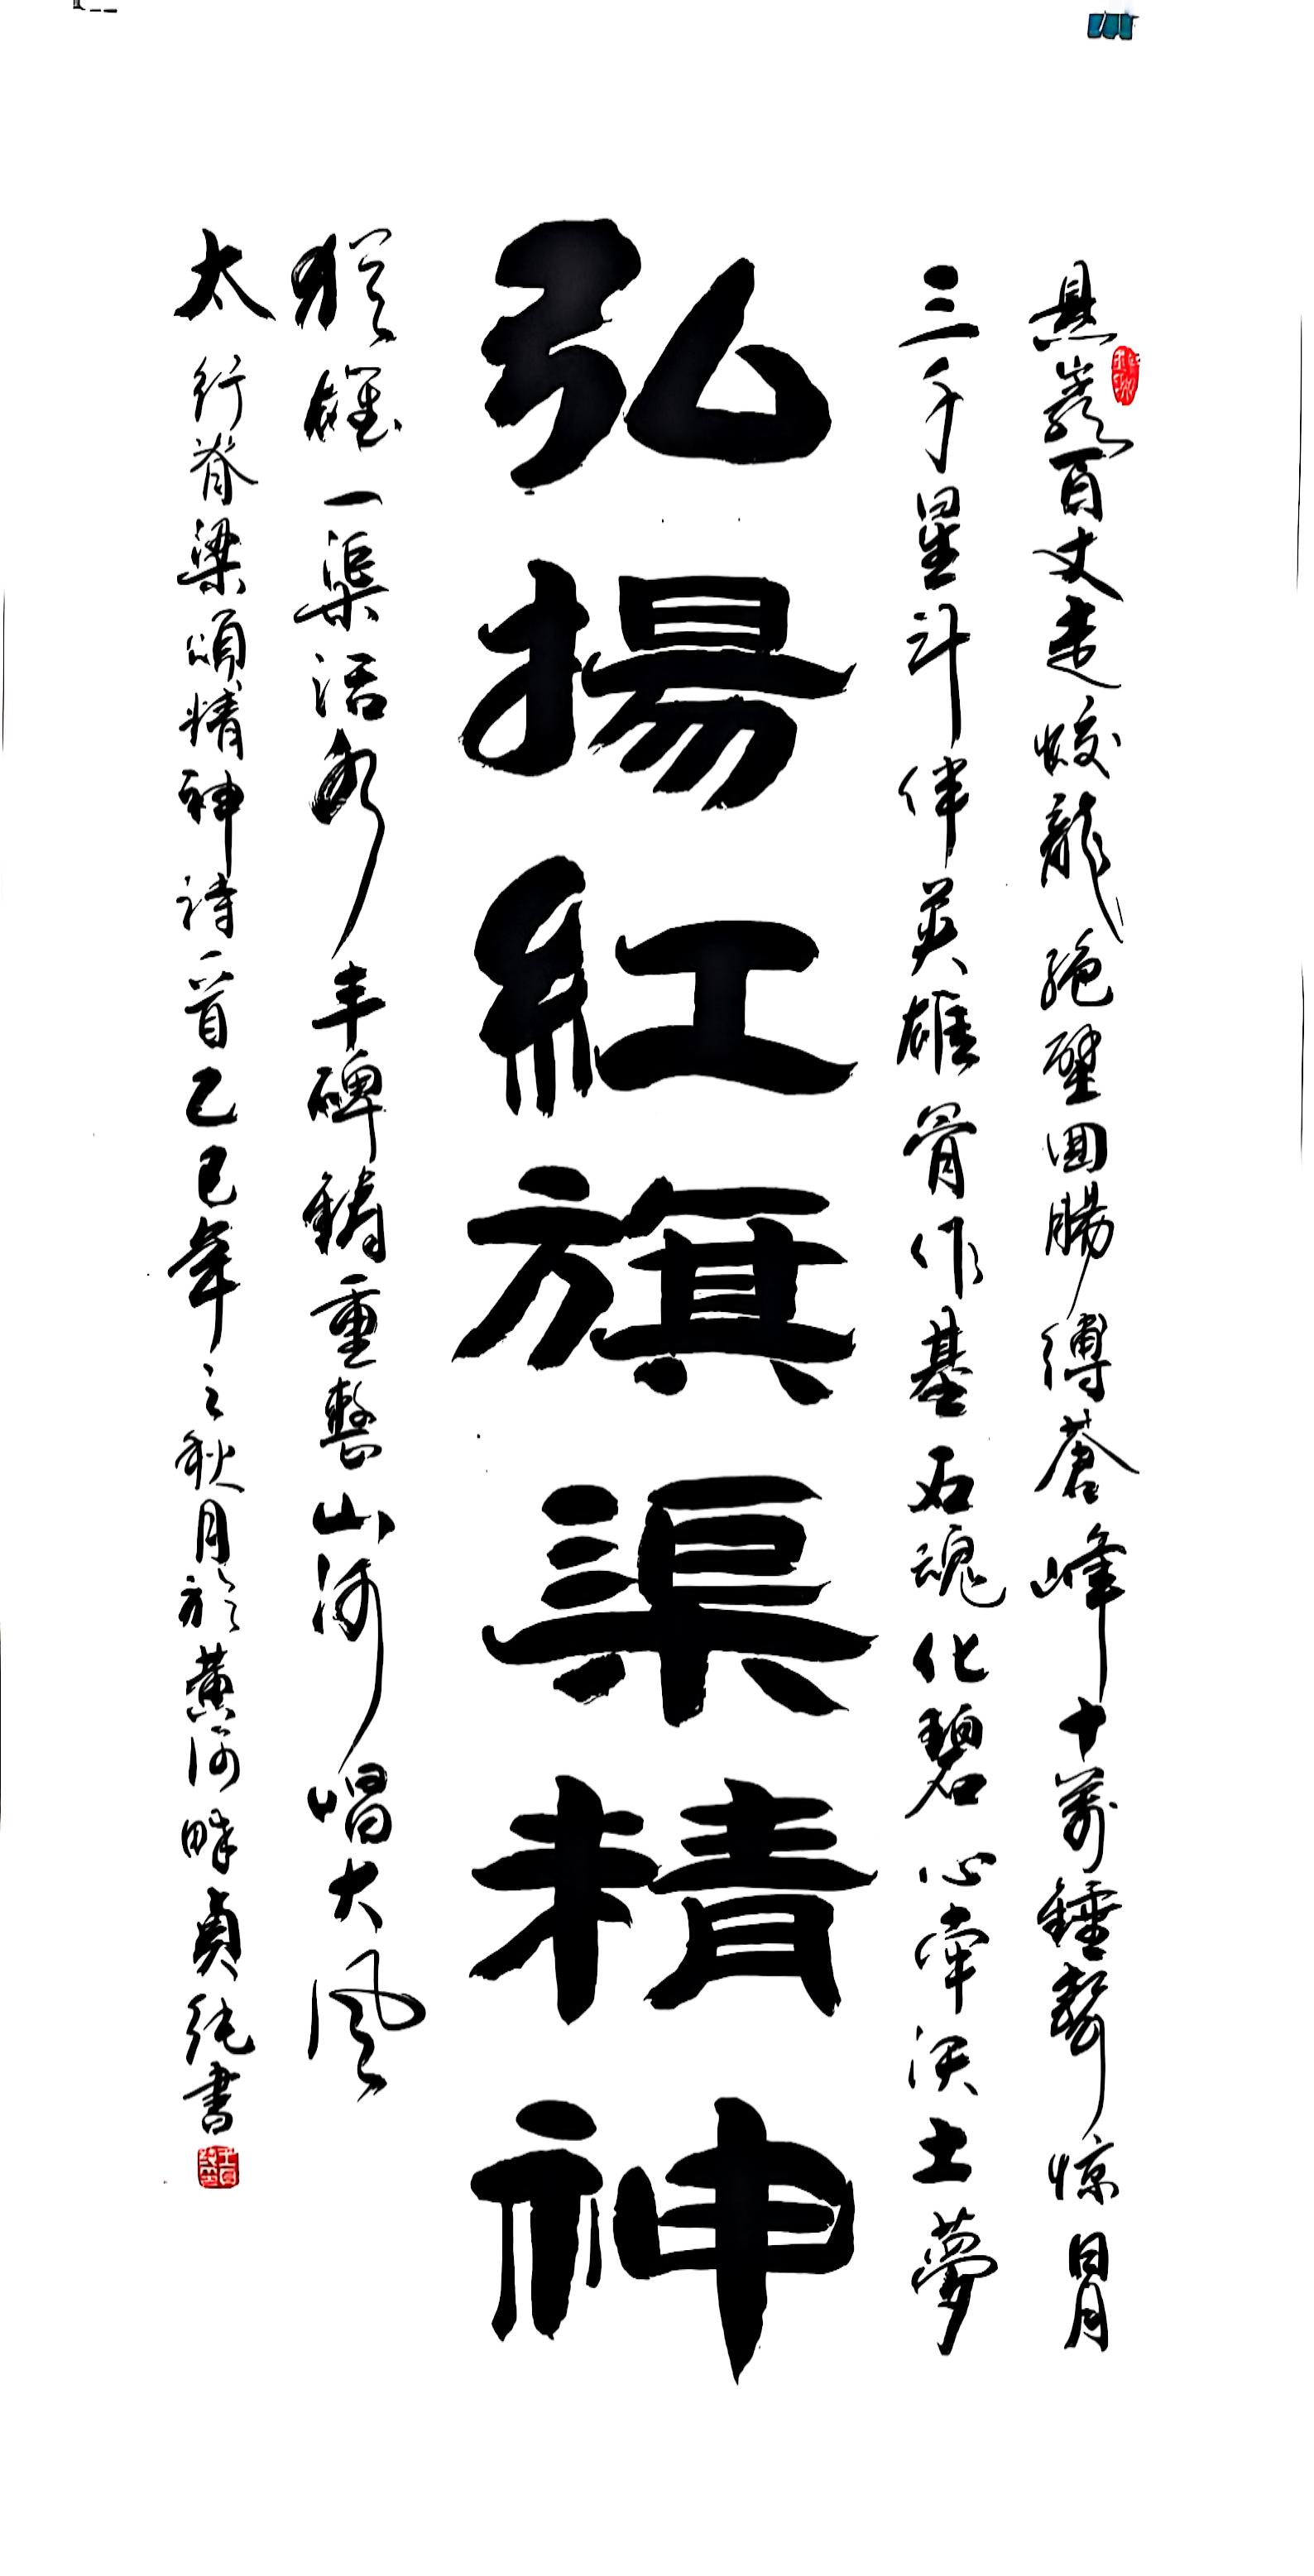 懸巖百丈走蛟龍絕壁回腸縛蒼峰十萬錘聲惊日月
三千星斗伴英雄骨作基石魂化碧心牽沃土夢
弘揚紅旗渠精神
猶一渠活水丰碑鑄重整山河唱大風
太行脊梁頌精神詩一首乙巳年之秋月於黃河畔貞純書